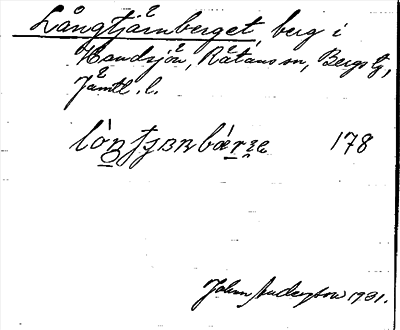 Långtjärnberget, berg i
Handsjön, Rätans sn, Bergs tg,
Jämtl. l.
178
John Andersson 1931.